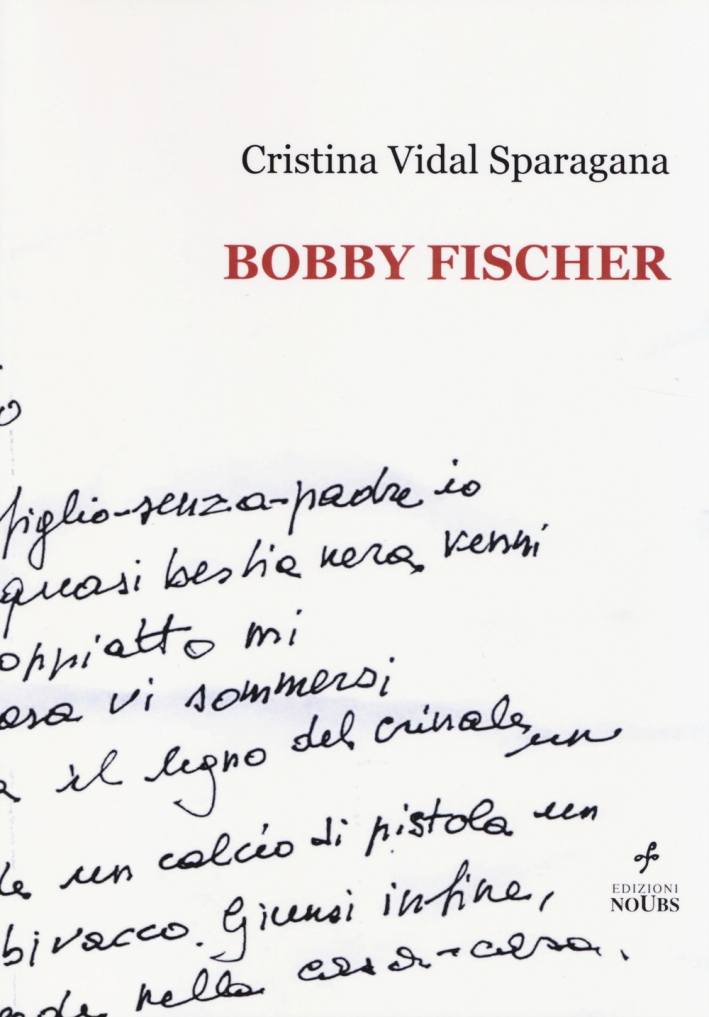 Cristina Vidal Sparagana
BOBBY FISCHER
o
figlio-senza-padre io
quasi bestia nera, venni
oppiatto mi
asa vi sommersi
a il legno del crinale, un
le, un calcio di pistola un
bivacco. Giunsi infine,
nella casa-cosa.
EDIZIONI
NOUBS